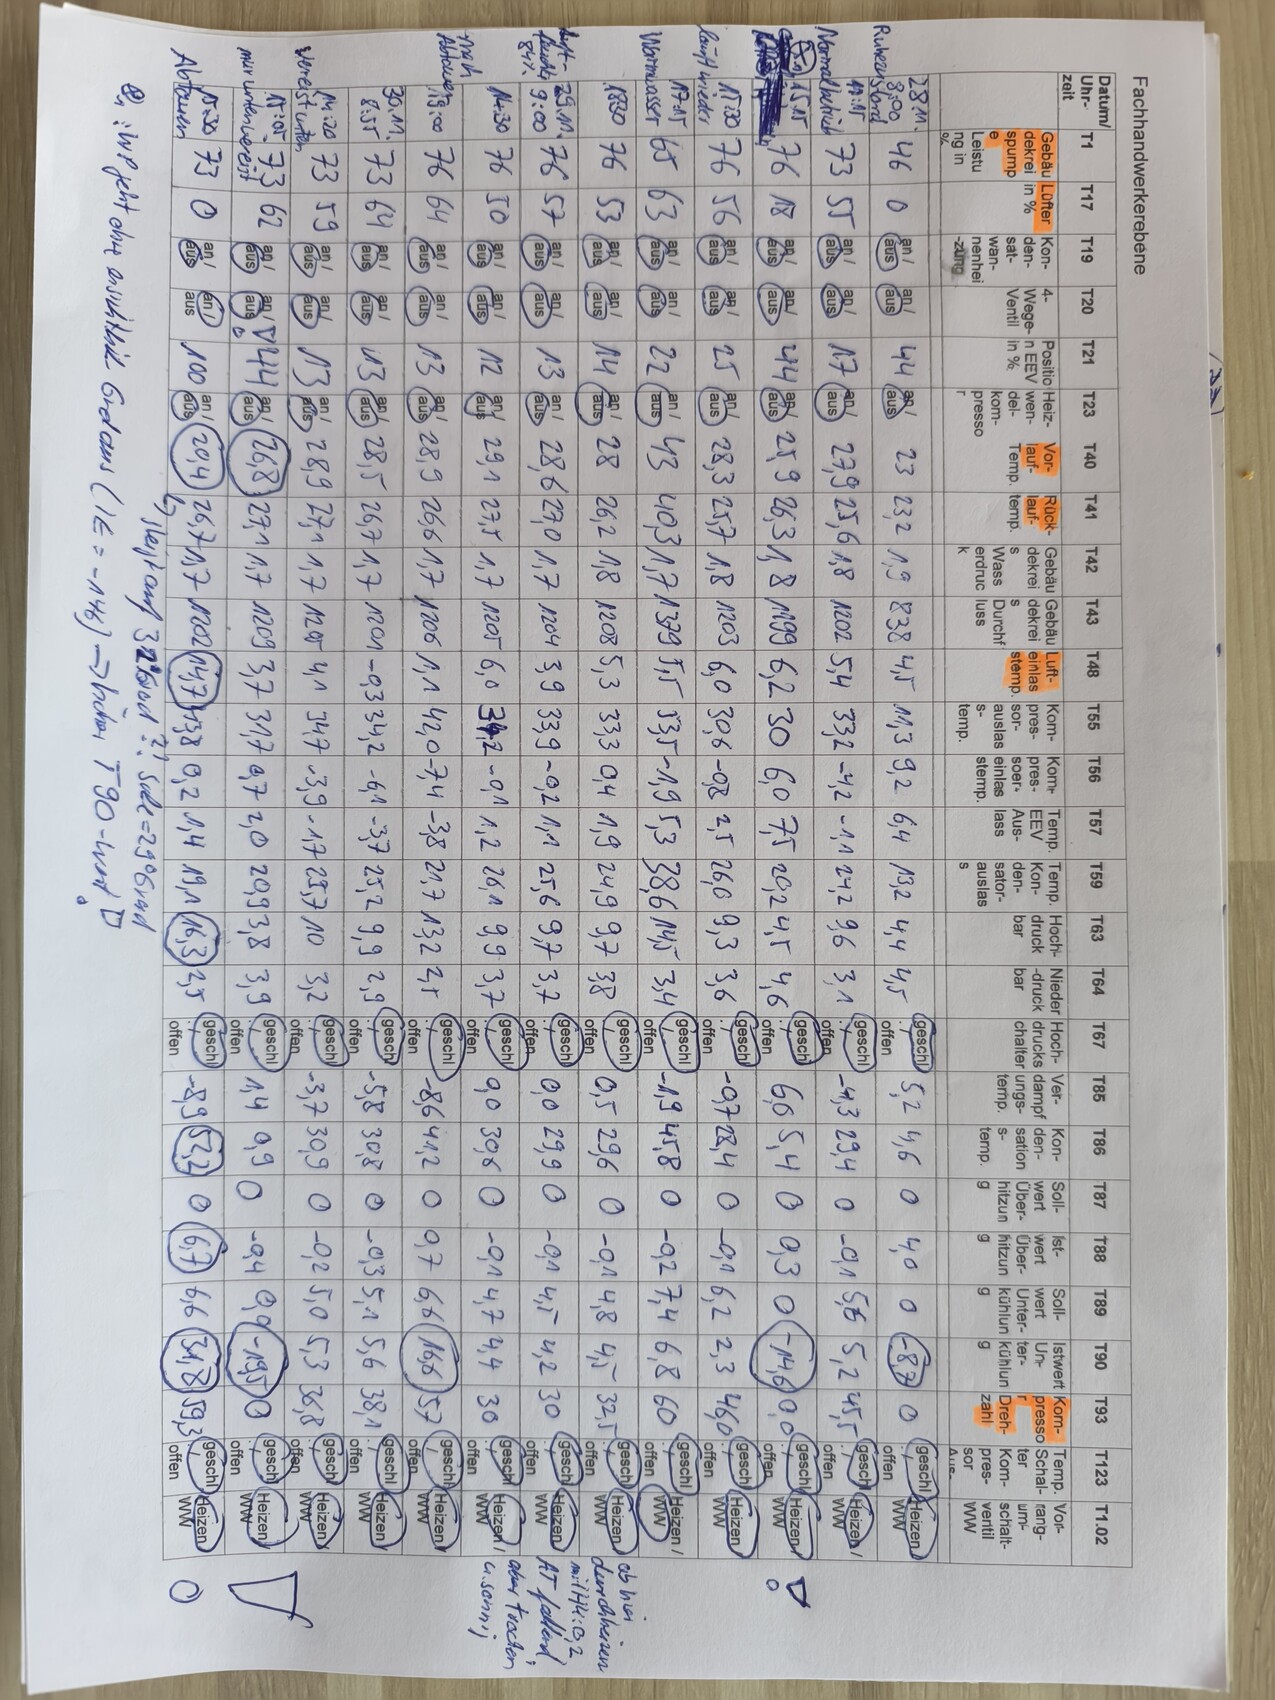 Fachhandwerkerebene
Datum/ Uhr- zeit | T1 | T17 | T19 | T20 | T21 | T23 | T40 | T41 | T42 | T43 | T48 | T55 | T56 | T57 | T59 | T63 | T64 | T67 | T85 | T86 | T87 | T88 | T89 | T90 | T93 | T123 | T1.02
Gebäu dekrei spump e Leistu ng in % | Lüfter in % | Kon- den- sat- wan- nenhei -zung | 4- Wege- Ventil | Positio n EEV in % | Heiz- wen- del- kom- presso r | Vor- lauf- Temp. | Rück- lauf- temp. | Gebäu dekrei s Wass erdruc k | Gebäu dekrei s Durchf luss | Luft- einlas stemp. | Kom- pres- sor- auslas s- temp. | Kom- pres- soer- einlas stemp. | Temp. EEV Aus- lass | Temp. Kon- den- sator- auslas s | Hoch- druck bar | Nieder -druck bar | Hoch- drucks chalter | Ver- dampf ungs- temp. | Kon- den- sation s- temp. | Soll- wert Über- hitzun g | Ist- wert Über- hitzun g | Soll- wert Unter- kühlun g | Istwert Un- ter- kühlun g | Kom- presso r Dreh- zahl | Temp. Schal- ter Kom- pres- sor | Vor- rang- um- schalt- ventil WW
28.11. 8:00 | 46 | 0 | an / aus | an / aus | 44 | an / aus | 23 | 23,2 | 1,9 | 838 | 4,5 | 11,3 | 9,2 | 6,4 | 13,2 | 4,4 | 4,5 | geschl ./ offen | 5,2 | 4,6 | 0 | 4,0 | 0 | -8,7 | 0 | geschl ./ offen | Heizen / WW
Normalbetrieb | 73 | 55 | an / aus | an / aus | 17 | an / aus | 27,9 | 25,6 | 1,8 | 1202 | 5,4 | 33,2 | -4,2 | -1,1 | 24,2 | 9,6 | 3,1 | geschl ./ offen | -4,3 | 29,4 | 0 | -0,1 | 5,6 | 5,2 | 45,5 | geschl ./ offen | Heizen / WW
15:15 | 76 | 18 | an / aus | an / aus | 44 | an / aus | 25,9 | 26,3 | 1,8 | 1199 | 6,2 | 30 | 6,0 | 7,5 | 20,2 | 4,5 | 4,6 | geschl ./ offen | 6,6 | 5,4 | 0 | 0,3 | 0 | -14,6 | 0,0 | geschl ./ offen | Heizen / WW
läuft wieder 15:30 | 76 | 56 | an / aus | an / aus | 25 | an / aus | 28,3 | 25,7 | 1,8 | 1203 | 6,0 | 30,6 | -0,8 | 2,5 | 26,0 | 9,3 | 3,6 | geschl ./ offen | -0,7 | 28,4 | 0 | -0,1 | 6,2 | 2,3 | 46,0 | geschl ./ offen | Heizen / WW
Warmwasser 17:15 | 65 | 63 | an / aus | an / aus | 22 | an / aus | 43 | 40,3 | 1,7 | 1379 | 5,5 | 53,5 | -1,9 | 5,3 | 38,6 | 14,5 | 3,4 | geschl ./ offen | -1,9 | 45,8 | 0 | -0,2 | 7,4 | 6,8 | 60 | geschl ./ offen | Heizen / WW
76 | 53 | an / aus | an / aus | 14 | an / aus | 28 | 26,2 | 1,8 | 1208 | 5,3 | 33,3 | 0,4 | 1,9 | 24,9 | 9,7 | 3,8 | geschl ./ offen | 0,5 | 29,6 | 0 | -0,1 | 4,8 | 4,5 | 32,5 | geschl ./ offen | Heizen / WW | ab hier durchheizen
29.11. 9:00 | 76 | 57 | an / aus | an / aus | 13 | an / aus | 28,6 | 27,0 | 1,7 | 1204 | 3,9 | 33,9 | -0,2 | 1,1 | 25,6 | 9,7 | 3,7 | geschl ./ offen | 0,0 | 29,9 | 0 | -0,1 | 4,5 | 4,2 | 30 | geschl ./ offen | Heizen / WW
14:30 | 76 | 50 | an / aus | an / aus | 12 | an / aus | 29,1 | 27,5 | 1,7 | 1205 | 6,0 | 34,2 | -0,1 | 1,2 | 26,1 | 9,9 | 3,7 | geschl ./ offen | 0,0 | 30,6 | 0 | -0,1 | 4,7 | 4,4 | 30 | geschl ./ offen | Heizen / WW | aber trocken u. sonnig
nach Abtauen | 76 | 64 | an / aus | an / aus | 13 | an / aus | 28,9 | 26,6 | 1,7 | 1206 | 1,1 | 42,0 | -7,4 | -3,8 | 21,7 | 13,2 | 2,5 | geschl ./ offen | -8,6 | 41,2 | 0 | 0,7 | 6,6 | 16,6 | 57 | geschl ./ offen | Heizen / WW
30.11. 8:55 | 73 | 64 | an / aus | an / aus | 13 | an / aus | 28,5 | 26,7 | 1,7 | 1201 | -0,3 | 34,2 | -6,1 | -3,7 | 25,2 | 9,9 | 2,9 | geschl ./ offen | -5,8 | 30,8 | 0 | -0,3 | 5,1 | 5,6 | 38,1 | geschl ./ offen | Heizen / WW
Vereist unten | 73 | 59 | an / aus | an / aus | 13 | an / aus | 28,9 | 27,1 | 1,7 | 1205 | 4,1 | 34,7 | -3,9 | -1,7 | 25,7 | 10 | 3,2 | geschl ./ offen | -3,7 | 30,9 | 0 | -0,2 | 5,0 | 5,3 | 36,8 | geschl ./ offen | Heizen / WW
nur unten vereist 15:05 | 73 | 62 | an / aus | an / aus | 44 | an / aus | 26,8 | 27,1 | 1,7 | 1209 | 3,7 | 31,7 | 0,7 | 2,0 | 20,9 | 3,8 | 3,9 | geschl ./ offen | 1,4 | 0,9 | 0 | -0,4 | 0,0 | -19,5 | 0 | geschl ./ offen | Heizen / WW
Abtauen 15:30 | 73 | 0 | an / aus | an / aus | 100 | an / aus | 20,4 | 26,7 | 1,7 | 1202 | 14,7 | 13,8 | 0,2 | 1,4 | 19,1 | 16,3 | 2,5 | geschl ./ offen | -8,9 | 52,2 | 0 | 6,7 | 6,6 | 31,8 | 59,3 | geschl ./ offen | Heizen / WW
steigt auf 32 Grad ?! Soll = 29 Grad
WP geht ohne ersichtlichen Grund aus (IE = -146) → hoher T90-Wert!